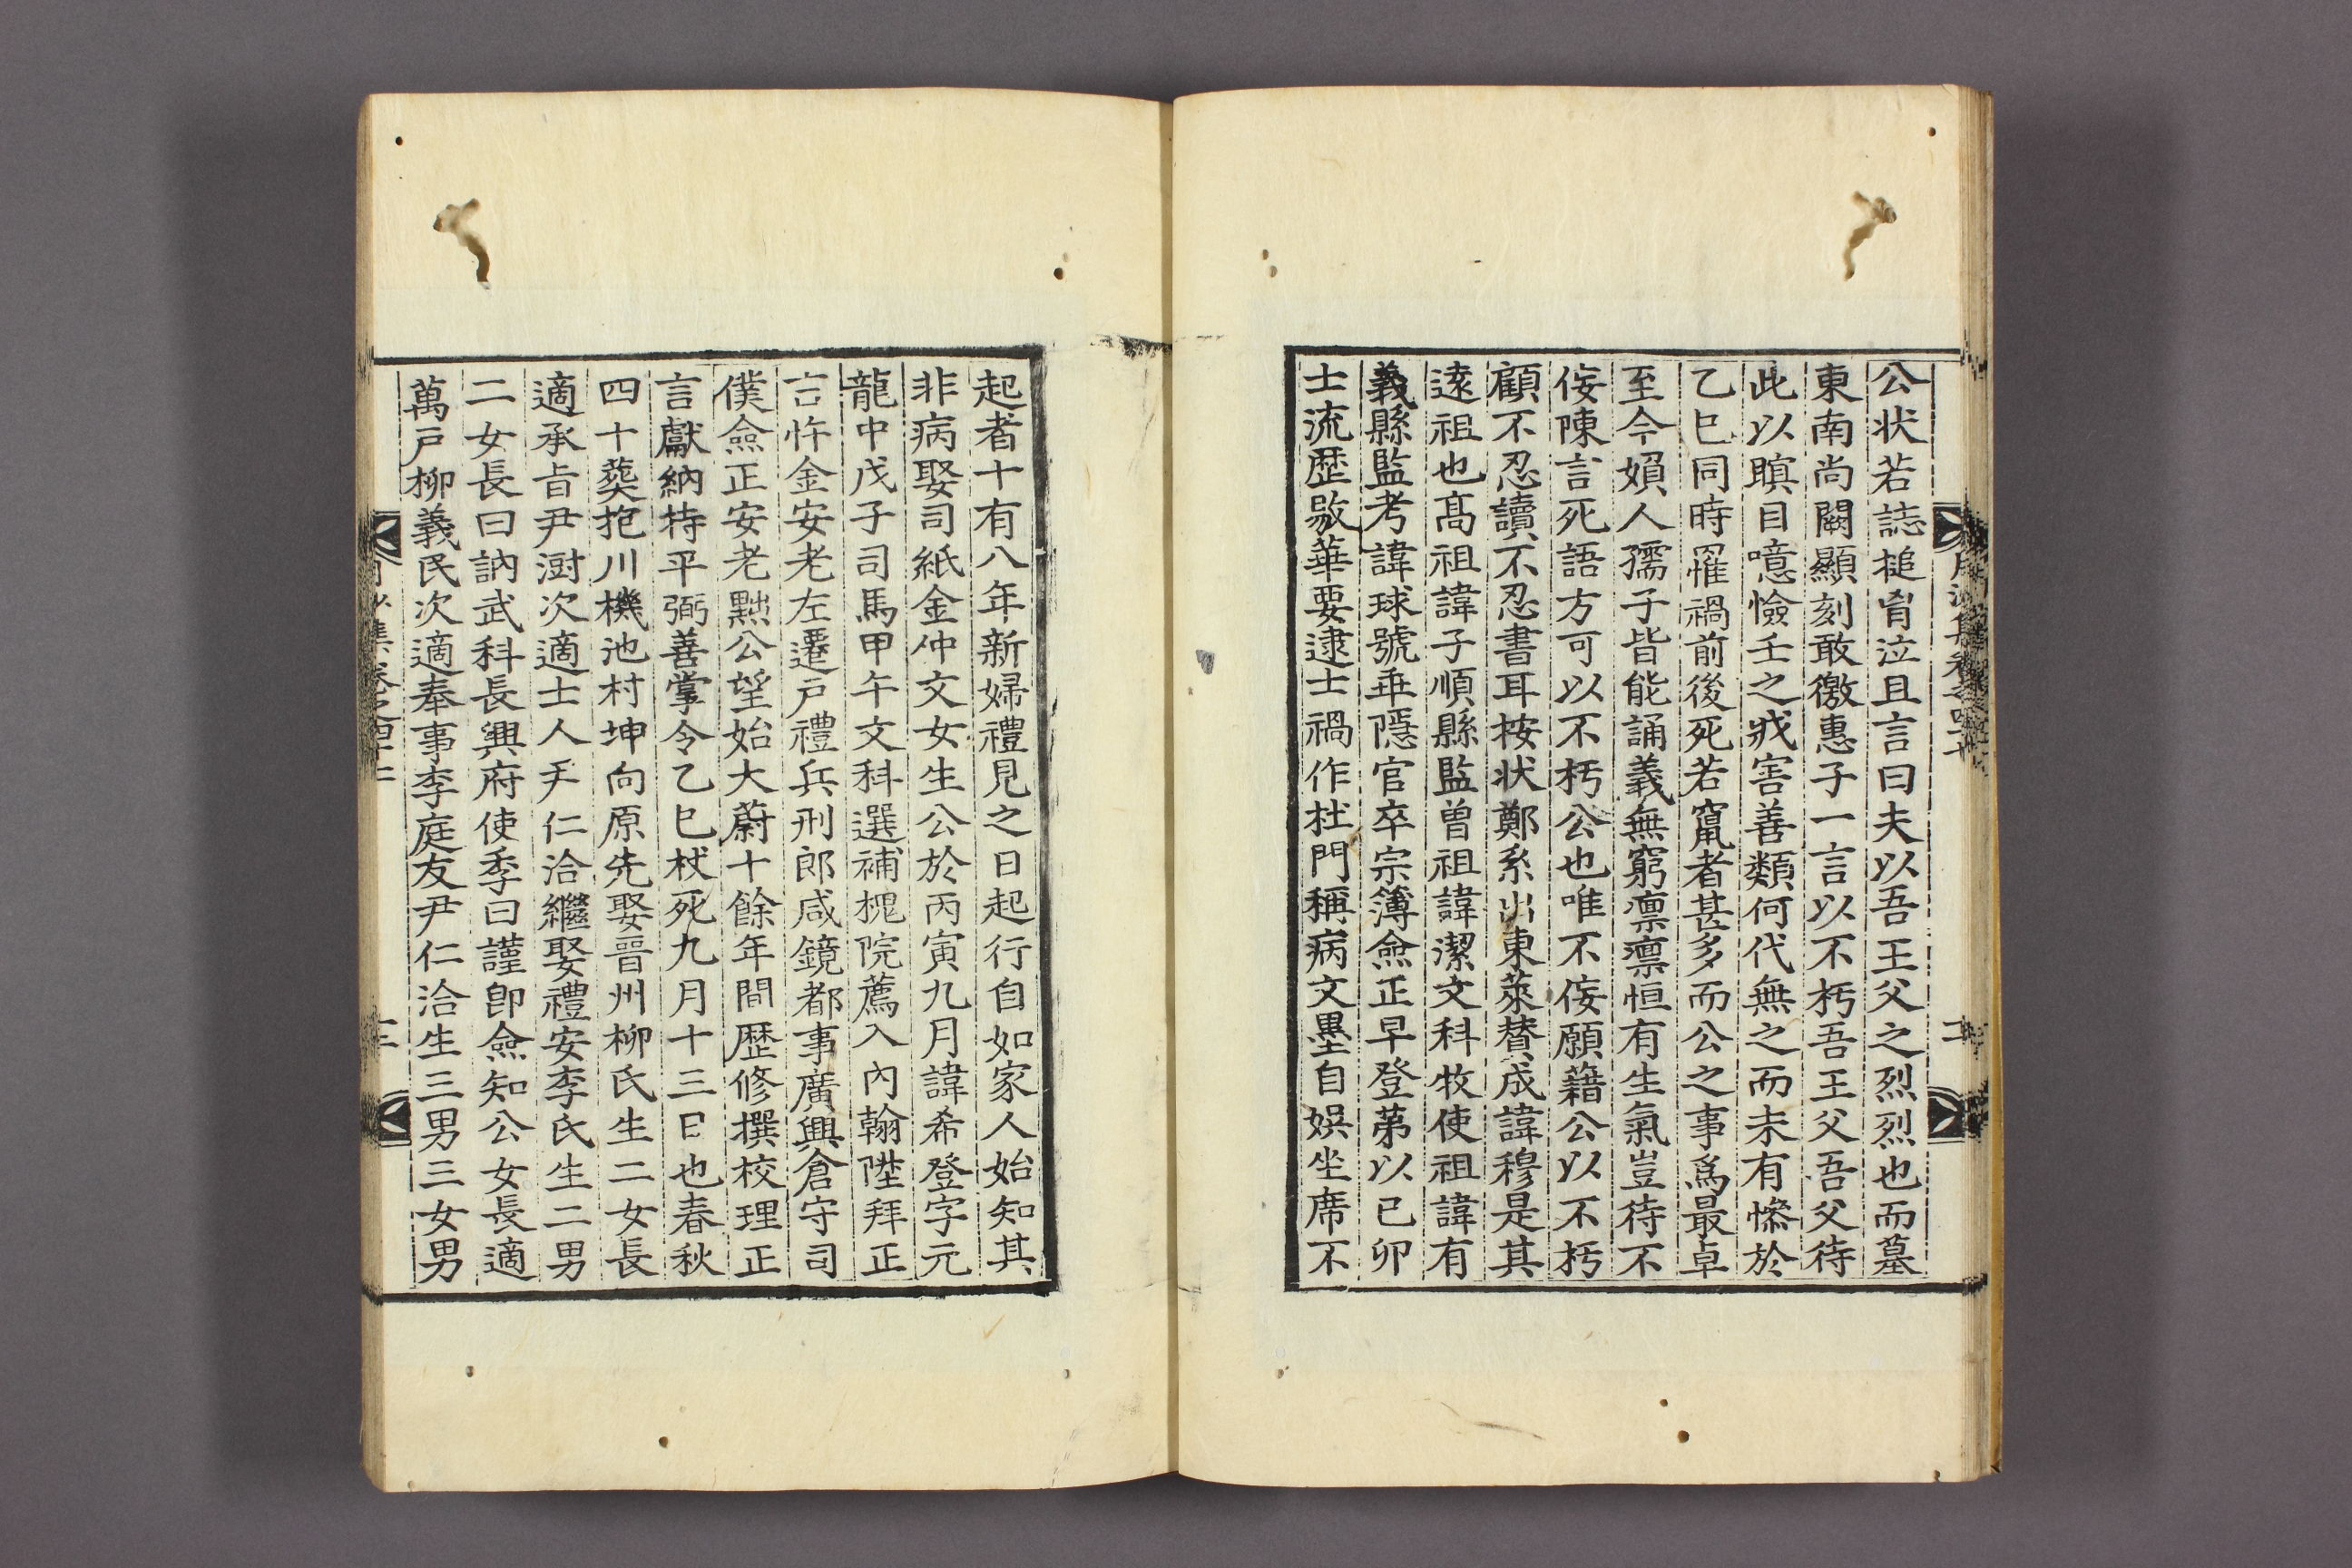 公状若誌槌胷泣且言曰夫以吾王父之烈烈也而墓
東南尚闕顯刻敢徼惠子一言以不朽吾王父吾父待
此以瞑目噫憸壬之戕害善類何代無之而未有憯於
乙巳同時罹禍前後死若竄者甚多而公之事爲最卓
至今嬪人孺子皆能誦義無窮凛凛恒有生氣豈待不
侫陳言死語方可以不朽公也唯不侫願籍公以不朽
顧不忍讀不忍書耳按状鄭系出東萊賛成諱穆是其
逺祖也高祖諱子順縣監曽祖諱潔文科牧使祖諱有
義縣監考諱球號乖隱官卒宗簿僉正早登苐以己卯
士流歴敭華要逮士禍作杜門稱病文墨自娯坐席不
起者十有八年新婦禮見之日起行自如家人始知其
非病娶司紙金仲文女生公於丙寅九月諱希登字元
龍中戊子司馬甲午文科選補槐院薦入內翰陞拜正
言忤金安老左遷戶禮兵刑郎咸鏡都事廣興倉守司
僕僉正安老黜公望始大蔚十餘年間歴修撰校理正
言獻納持平弼善掌令乙巳杖死九月十三日也春秋
四十葬抱川機池村坤向原先娶晋州柳氏生二女長
適承旨尹澍次適士人尹仁洽繼娶禮安李氏生二男
二女長曰訥武科長興府使季曰謹卽僉知公女長適
萬戶柳義民次適奉事李庭友尹仁洽生三男三女男